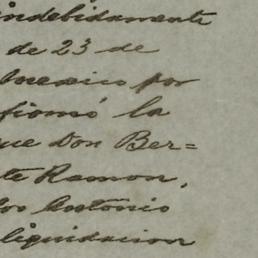 indebidamente
de 23 de
Mexico por
firmó la
que Don Ber=
te Ramon,
los Antonio
liquidacion